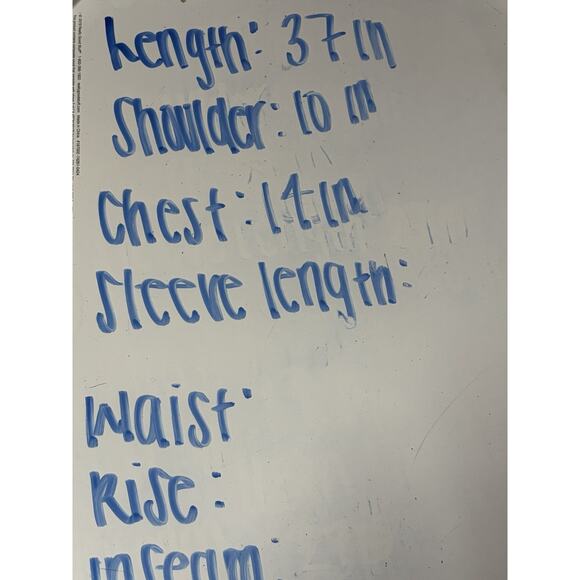 Length: 37 in
Shoulder: 10 in
Chest: 14 in
Sleeve length:
Waist:
Rise:
Inseam: